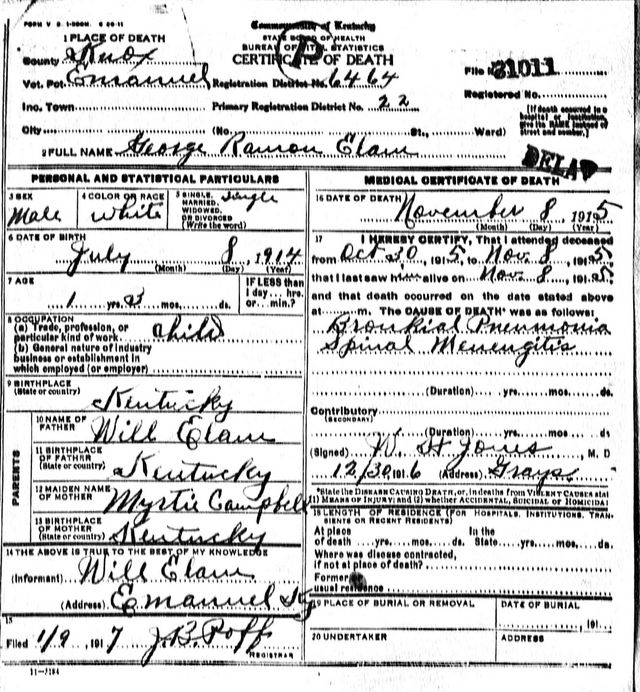 FORM V S. 1-500M. 6 20-11
Commonwealth of Kentucky
STATE BOARD OF HEALTH
BUREAU OF VITAL STATISTICS
CERTIFICATE OF DEATH
1 PLACE OF DEATH
County Knox
Vot. Pct. Emanuel Registration District No. 6464
File No. 31011
Inc. Town Primary Registration District No. 22
Registered No.
City (No. St., Ward)
[If death occurred in a hospital or institution, give its NAME instead of street and number.]
2 FULL NAME George Ramon Elam
DELAD
PERSONAL AND STATISTICAL PARTICULARS
3 SEX Male
4 COLOR OR RACE White
5 SINGLE, MARRIED, WIDOWED, OR DIVORCED (Write the word) Single
6 DATE OF BIRTH
July 8, 1914
(Month) (Day) (Year)
7 AGE
1 yrs. 3 mos. ds.
IF LESS than 1 day... hrs. or... min.?
8 OCCUPATION
(a) Trade, profession, or particular kind of work Child
(b) General nature of industry business or establishment in which employed (or employer)
9 BIRTHPLACE
(State or country) Kentucky
PARENTS
10 NAME OF FATHER Will Elam
11 BIRTHPLACE OF FATHER (State or country) Kentucky
12 MAIDEN NAME OF MOTHER Myrtie Campbell
13 BIRTHPLACE OF MOTHER (State or country) Kentucky
14 THE ABOVE IS TRUE TO THE BEST OF MY KNOWLEDGE
(Informant) Will Elam
(Address) Emanuel Ky
15
Filed 1/9 1917 J.B. Poff
REGISTRAR
11-3184
MEDICAL CERTIFICATE OF DEATH
16 DATE OF DEATH
November 8, 1915
(Month) (Day) (Year)
17 I HEREBY CERTIFY, That I attended deceased
from Oct 30, 1915, to Nov. 8, 1915
that I last saw him alive on Nov. 8, 1915,
and that death occurred on the date stated above
at m. The CAUSE OF DEATH* was as follows:
Bronkial Pneumonia
Spinal Menengitis
(Duration) yrs. mos. ds.
Contributory
(SECONDARY)
(Duration) yrs. mos. ds.
(Signed) W. H. Jones, M. D
12/30 1916 (Address) Grays
*State the DISEASE CAUSING DEATH, or, in deaths from VIOLENT CAUSES stat
(1) MEANS OF INJURY; and (2) whether ACCIDENTAL, SUICIDAL or HOMICIDAL
18 LENGTH OF RESIDENCE (FOR HOSPITALS, INSTITUTIONS, TRANSIENTS OR RECENT RESIDENTS)
At place of death yrs. mos. ds. In the State yrs. mos. ds.
Where was disease contracted,
if not at place of death?
Former or
usual residence
19 PLACE OF BURIAL OR REMOVAL
DATE OF BURIAL
, 191
20 UNDERTAKER
ADDRESS